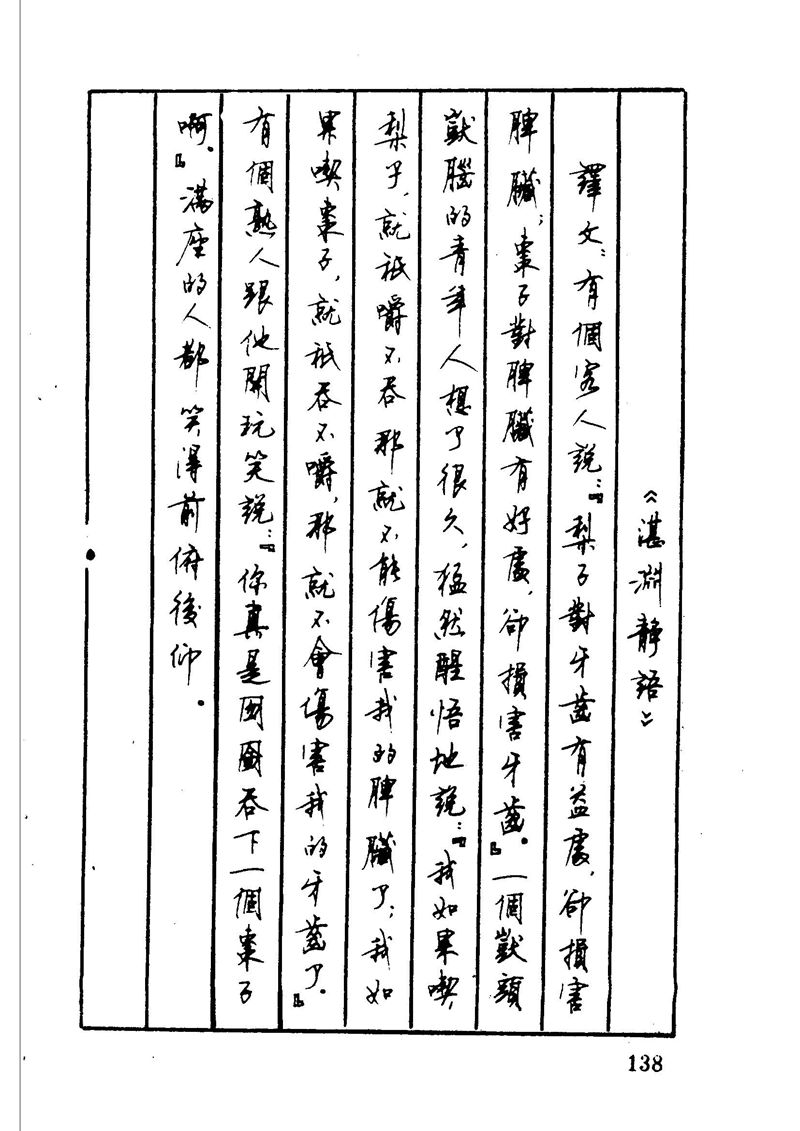 《湛淵靜語》
譯文：有個客人說：『梨子對牙齒有益處，卻損害
脾臟；棗子對脾臟有好處，卻損害牙齒。』一個獃頭
獃腦的青年人想了很久，猛然醒悟地說：『我如果喫
梨子，就衹嚼不吞那就不能傷害我的脾臟了；我如
果喫棗子，就衹吞不嚼，那就不會傷害我的牙齒了。』
有個熟人跟他開玩笑說：『你真是囫圇吞下一個棗子
啊。』滿座的人都笑得前俯後仰。
138